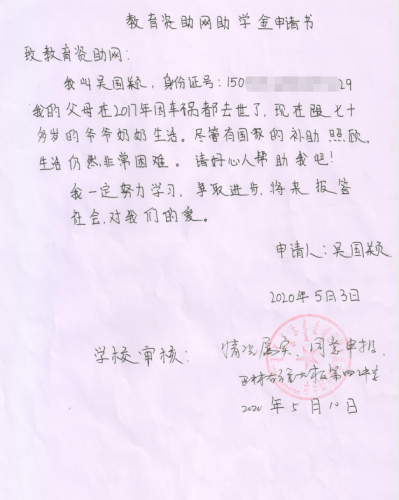 教育资助网助学金申请书
致教育资助网：
我叫吴国颖，身份证号：150 29
我的父母在2017年因车祸都去世了，现在跟七十
多岁的爷爷奶奶生活。尽管有国家的补助照顾，
生活仍然非常困难。请好心人帮助我吧！
我一定努力学习，争取进步，将来报答
社会，对我们的爱。
申请人：吴国颖
2020年5月3日
学校审核：情况属实，同意申报。
巴林右旗大板第四中学
2020年5月10日